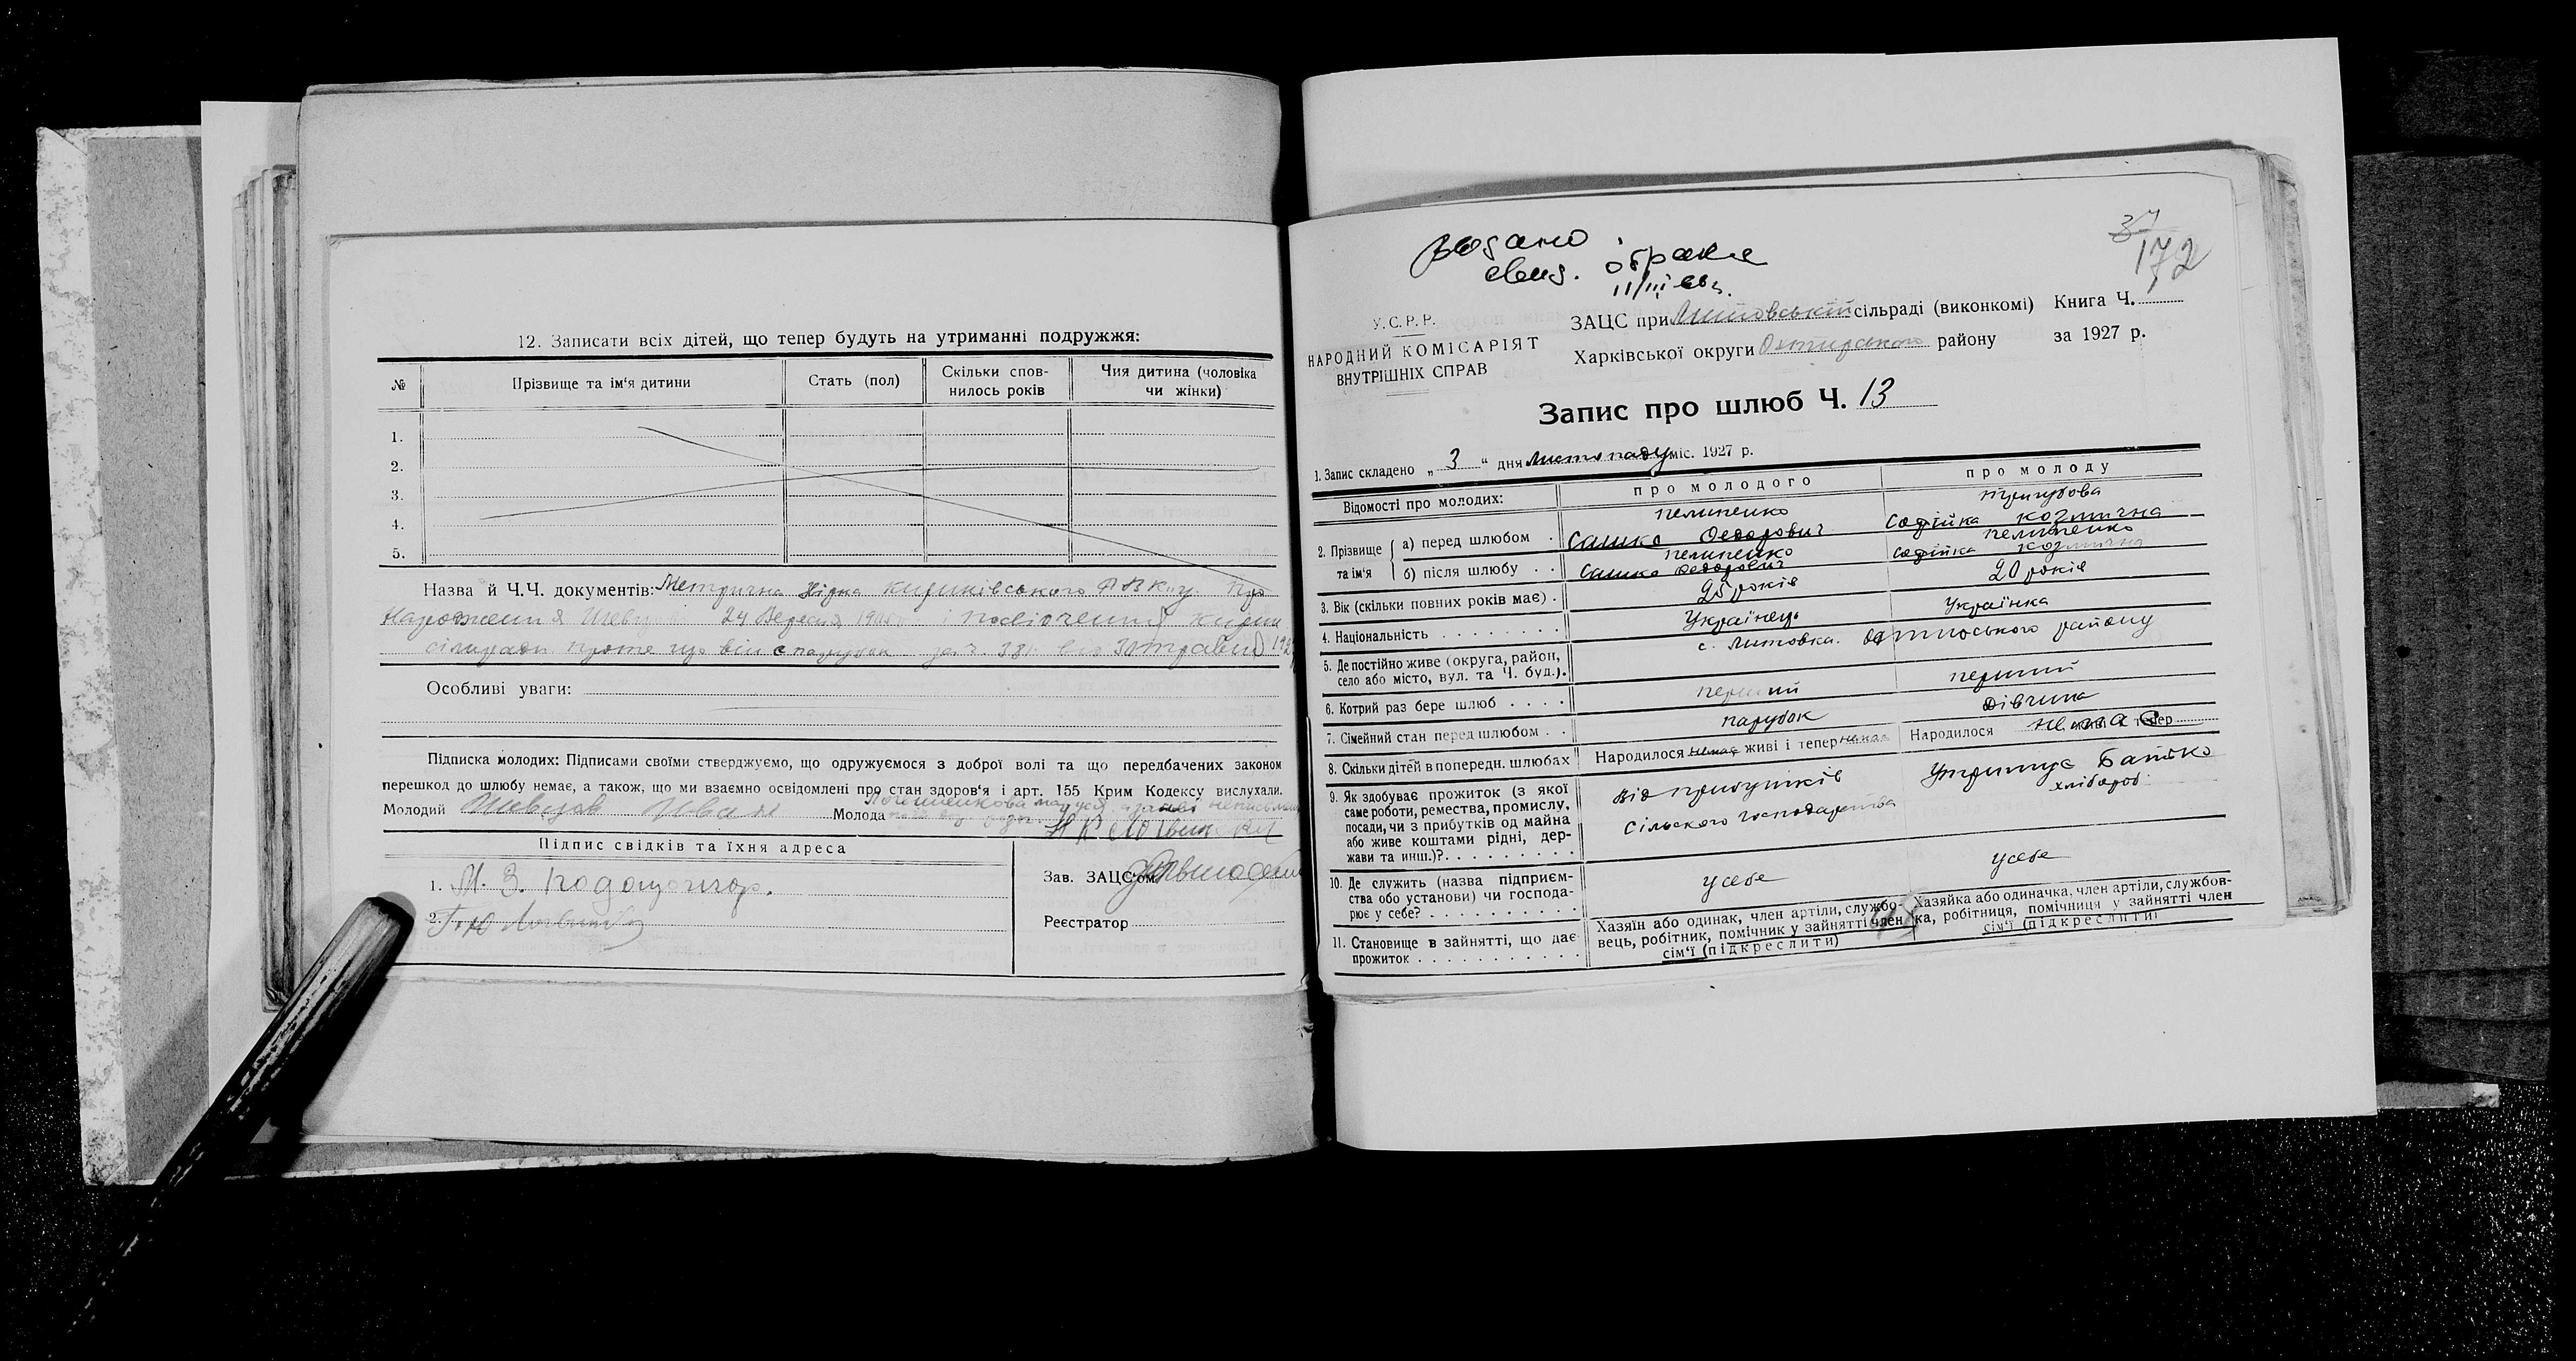 12. Записати всіх дітей, що тепер будуть на утриманні подружжя:
№ Прізвище та ім'я дитини Стать (пол) Скільки спов- Чия дитина (чоловіка
нилось років чи жінки)
1.
2.
3.
4.
5.
Назва й Ч.Ч. документів: Метрична
24 Вересня і
що він парубок за ч.
Особливі уваги:
Підписка молодих: Підписами своїми стверджуємо, що одружуємося з доброї волі та що передбачених законом
перешкод до шлюбу немає, а також, що ми взаємно освідомлені про стан здоров'я і арт. 155 Крим Кодексу вислухали.
Молодий Шевцов Иван Молода
Підпис свідків та їхня адреса
1. М. З.
Зав. ЗАЦС'ом
2.
Реєстратор
37
172
видано
свид. о браке
У.С.Р.Р.
НАРОДНИЙ КОМІСАРІЯТ
ВНУТРІШНІХ СПРАВ
ЗАЦС при Литовській сільраді (виконкомі) Книга Ч.
Харківської округи Охтирського району за 1927 р.
Запис про шлюб Ч. 13
1. Запис складено „ 3 " дня листопаду міс. 1927 р.
Відомості про молодих: про молодого про молоду
2. Прізвище та ім'я
а) перед шлюбом . Пелипенко Сашко Федорович Софійка Козмична
б) після шлюбу . . Пелипенко Сашко Федорович Пелипенко Софійка Козмична
3. Вік (скільки повних років має) . 25 років 20 років
4. Національність . . . . . . . . Українець Українка
5. Де постійно живе (округа, район, с. Литовка. району
село або місто, вул. та Ч. буд.).
6. Котрий раз бере шлюб . . . . перший перший
7. Сімейний стан перед шлюбом . . парубок дівчина
8. Скільки дітей в попередн. шлюбах Народилося немає живі і тепер немає Народилося немає тепер
9. Як здобуває прожиток (з якої від прибутків Утримує Батько
саме роботи, ремества, промислу, сільского господарства хлібороб
посади, чи з прибутків од майна
або живе коштами рідні, дер-
жави та инш.)? . . . . . . . . .
10. Де служить (назва підприєм- у себе у себе
ства обо установи) чи господа-
рює у себе? . . . . . . . . . .
11. Становище в зайнятті, що дає
прожиток . . . . . . . . . . .
Хазяїн або одинак, член артіли, службо-
вець, робітник, помічник у зайнятті член
сім'ї (підкреслити)
Хазяйка або одиначка, член артіли, службов-
ка, робітниця, помічниця у зайнятті член
сім'ї (підкреслити)